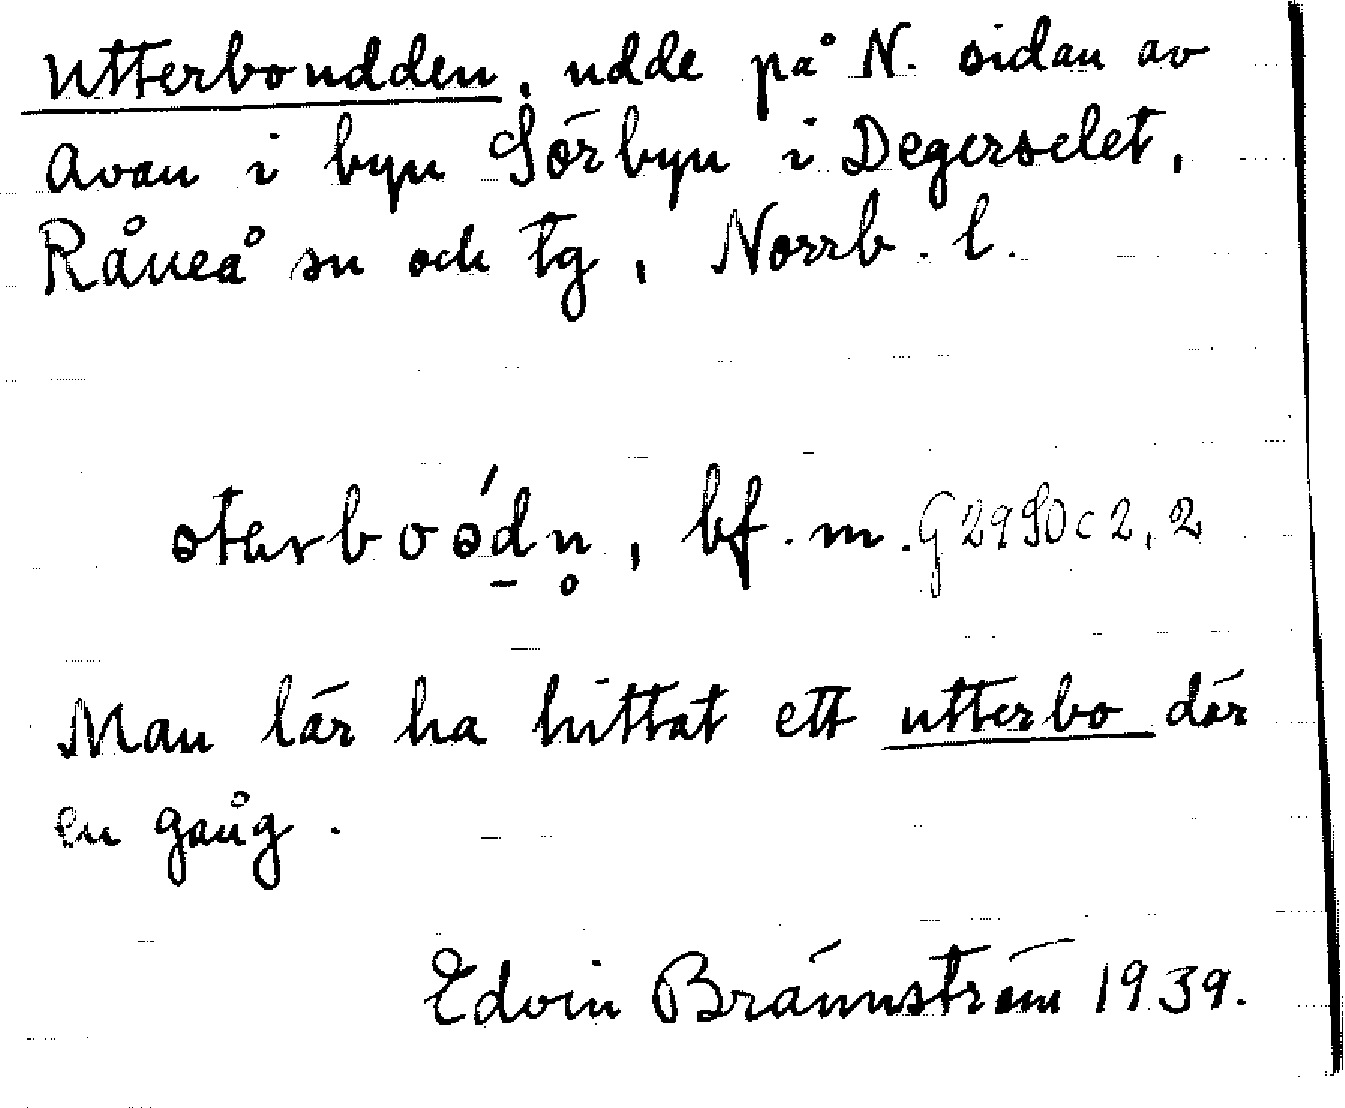 Utterboudden, udde på N. sidan av
Avan i byn Sörbyn i Degerselet,
Råneå sn och tg, Norrb. l.
bf. m. G 2950 c 2, 2
Man lär ha hittat ett utterbo där
en gång.
Edvin Brännström 1939.